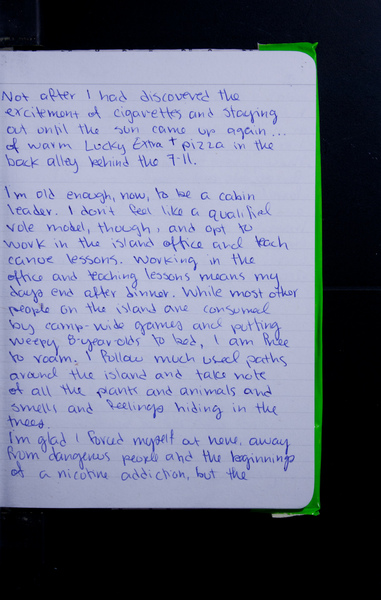 Not after I had discovered the
excitement of cigarettes and staying
out until the sun came up again...
of warm Lucky Extra + pizza in the
back alley behind the 7-11.
I'm old enough, now, to be a cabin
leader. I don't feel like a qualified
role model, though, and opt to
work in the island office and teach
canoe lessons. Working in the
office and teaching lessons means my
days end after dinner. While most other
people on the island are consumed
by camp-wide games and putting
weepy 8-year-olds to bed, I am free
to roam. I follow much used paths
around the island and take note
of all the plants and animals and
smells and feelings hiding in the
trees.
I'm glad I forced myself out here. away
from dangerous people and the beginnings
of a nicotine addiction, but the